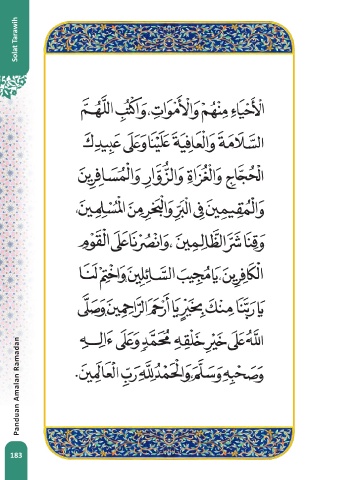 Solat Tarawih
الْأَحْيَاءِ مِنْهُمْ وَالْأَمْوَاتِ، وَاكْتُبِ اللَّهُمَّ
السَّلَامَةَ وَالْعَافِيَةَ عَلَيْنَا وَعَلَى عَبِيدِكَ
الْحُجَّاجِ وَالْغُزَاةِ وَالزُّوَّارِ وَالْمُسَافِرِينَ
وَالْمُقِيمِينَ فِى الْبَرِّ وَالْبَحْرِ مِنَ الْمُسْلِمِينَ،
وَقِنَا شَرَّ الظَّالِمِينَ، وَانْصُرْنَا عَلَى الْقَوْمِ
الْكَافِرِينَ، يَا مُجِيبَ السَّائِلِينَ وَاخْتِمْ لَنَا
يَا رَبَّنَا مِنْكَ بِخَيْرٍ يَا أَرْحَمَ الرَّاحِمِينَ وَصَلَّى
اللَّهُ عَلَى خَيْرِ خَلْقِهِ مُحَمَّدٍ وَعَلَى ءَالِهِ
وَصَحْبِهِ وَسَلَّمَ، وَالْحَمْدُ لِلَّهِ رَبِّ الْعَالَمِينَ.
Panduan Amalan Ramadan
183